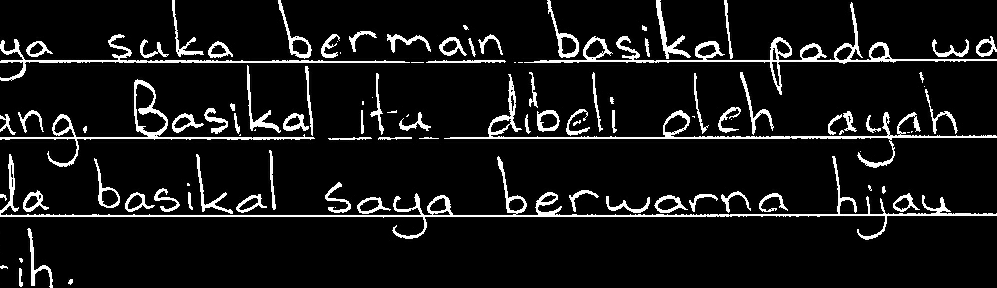 ya suka bermain basikal pada wa
ang. Basikal itu dibeli oleh ayah
da basikal saya berwarna hijau
ih.